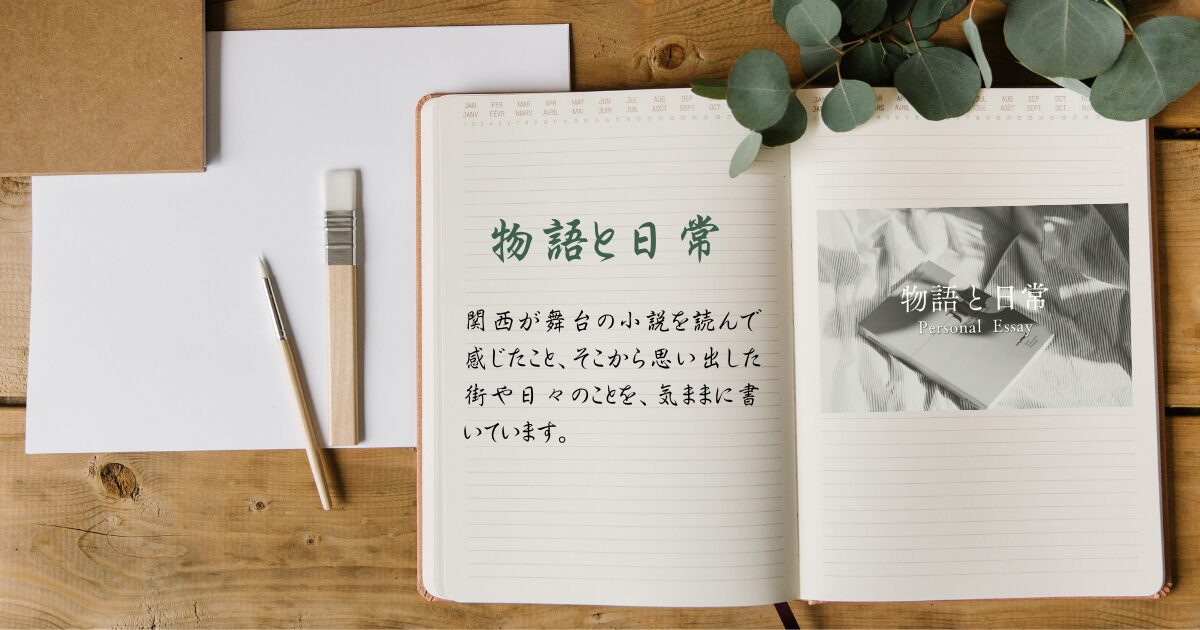 JAN FEB MAR APR MAY JUN JUL AUG SEP OCT
JANV FÉVR MARS AVRIL MAI JUIN JUIL AOÛT SEPT
物語と日常
関西が舞台の小説を読んで
感じたこと、そこから思い出した
街や日々のことを、気ままに書
いています。
JUL AUG SEP OCT NOV DEC
AOÛT SEPT OCT NOV DEC
物語と日常
Personal Essay